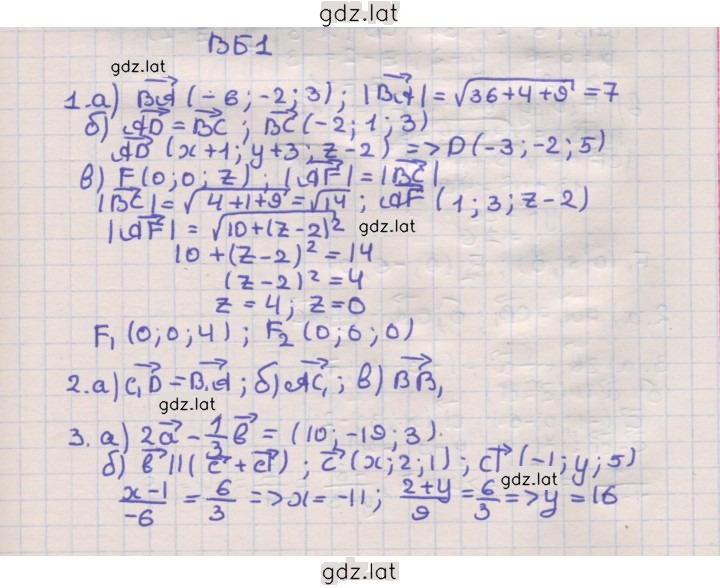 gdz.lat
ВБ1
gdz.lat
1. а) BA⃗ (-6; -2; 3); |BA⃗| = √36+4+9 = 7
б) AD⃗ = BC⃗; BC⃗ (-2; 1; 3)
AD⃗ (x+1; y+3; z-2) => D(-3; -2; 5)
в) F(0; 0; z); |AF⃗| = |BC⃗|
|BC⃗| = √4+1+9 = √14; AF⃗ (1; 3; z-2)
|AF⃗| = √10+(z-2)² gdz.lat
10 + (z-2)² = 14
(z-2)² = 4
z = 4; z = 0
F₁ (0; 0; 4); F₂ (0; 0; 0)
2. а) C₁D⃗ = B₁A⃗; б) AC₁⃗; в) BB₁⃗
gdz.lat
3. а) 2a⃗ - 1/3 b⃗ = (10; -19; 3).
б) b⃗ || (c⃗ + d⃗); c⃗ (x; 2; 1); d⃗ (-1; y; 5)
gdz.lat
x-1/-6 = 6/3 => x = -11; 2+y/9 = 6/3 => y = 16
gdz.lat